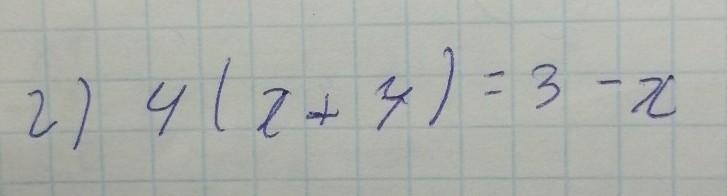 2) 4(x+7)=3-x